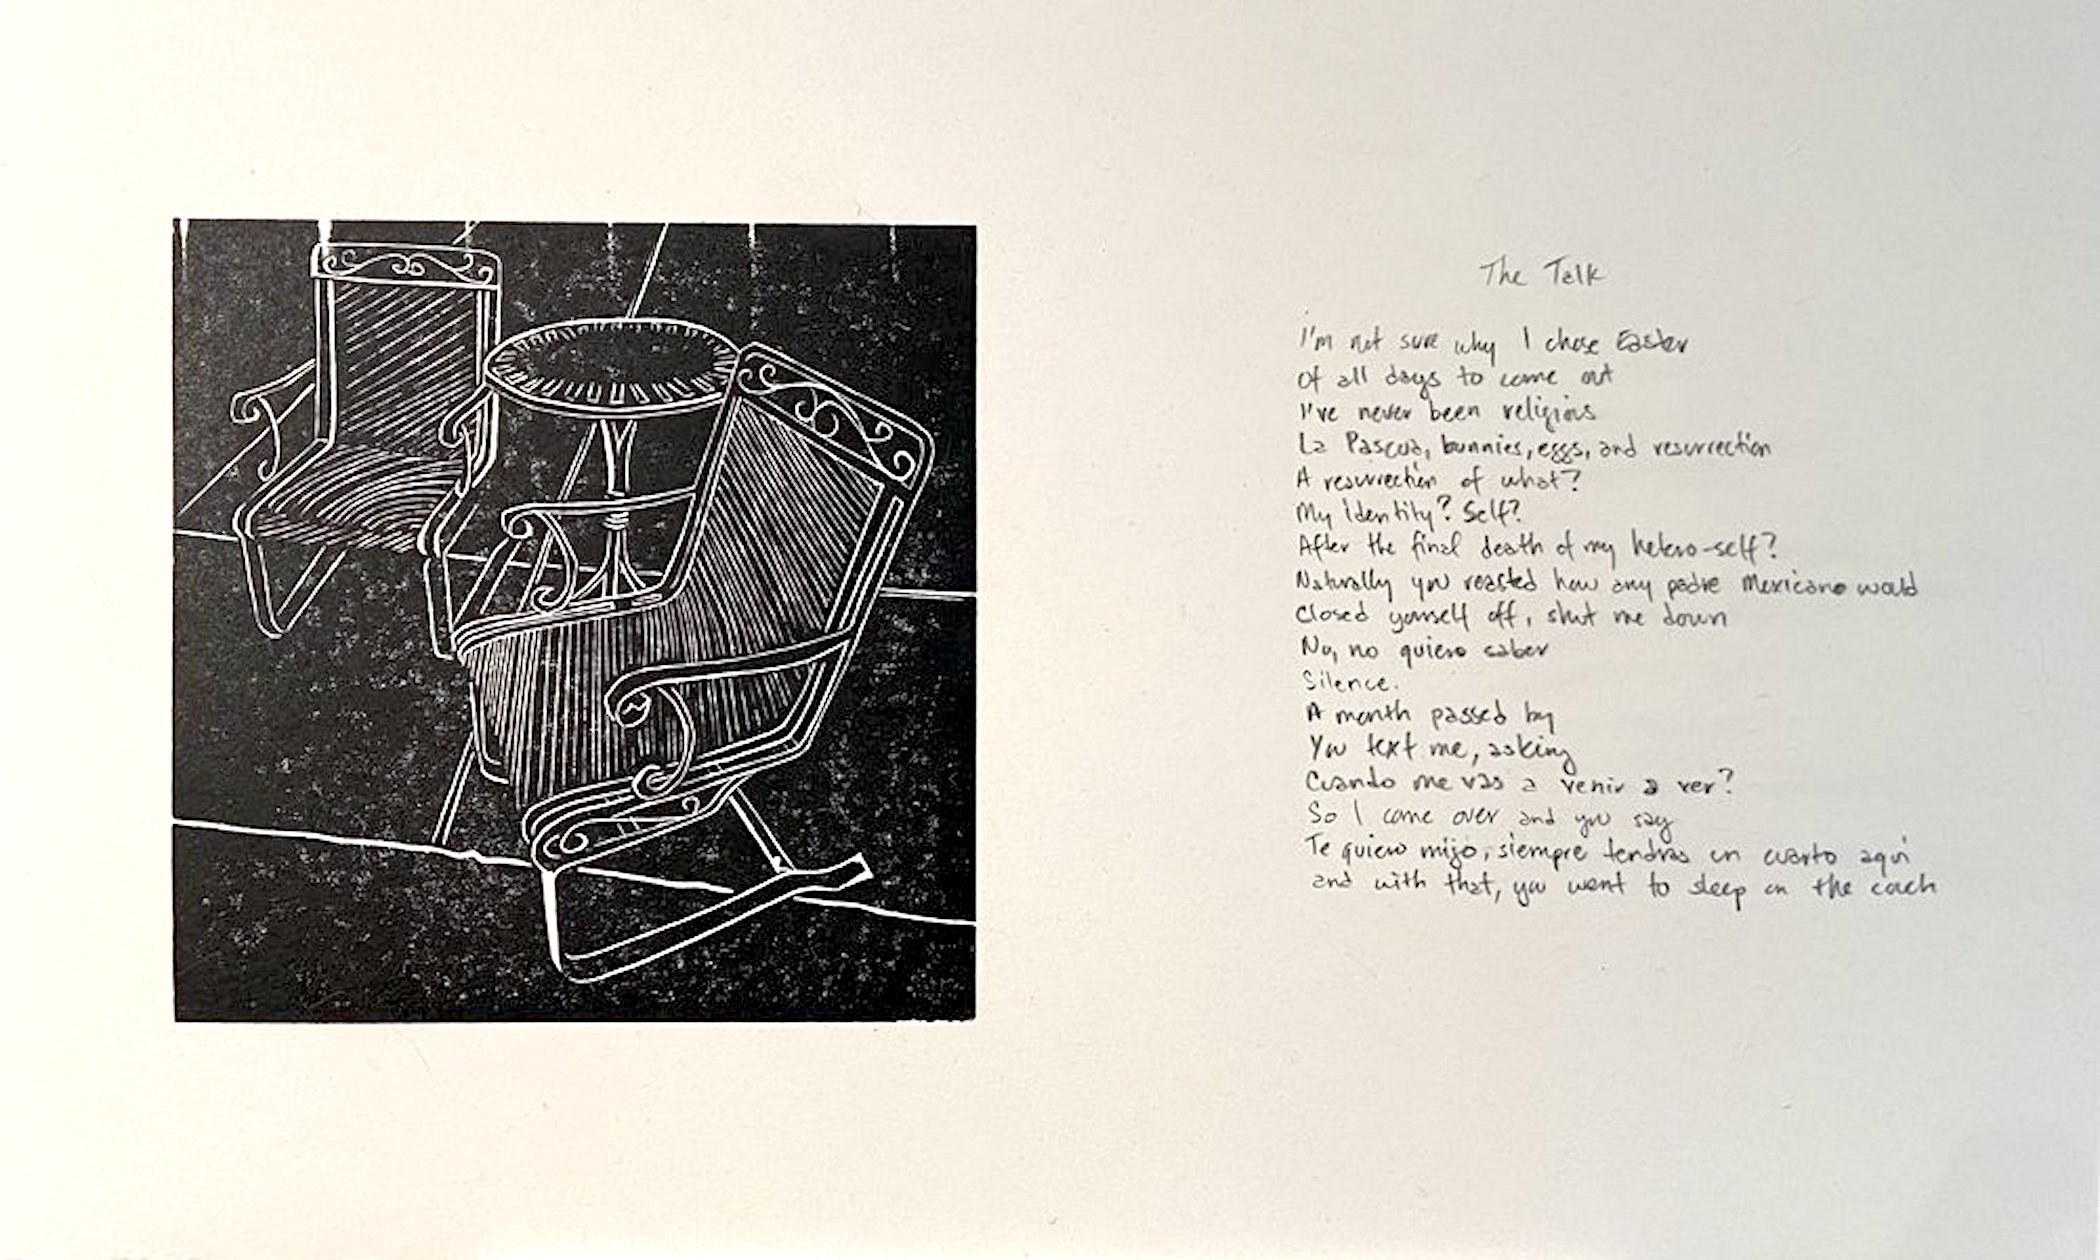 The Talk
I'm not sure why I chose Easter
Of all days to come out
I've never been religious
La Pascua, bunnies, eggs, and resurrection
A resurrection of what?
My Identity? Self?
After the final death of my hetero-self?
Naturally you reacted how any padre Mexicano would
Closed yourself off, shut me down
No, no quiero saber
Silence.
A month passed by
You text me, asking
Cuando me vas a venir a ver?
So I come over and you say
Te quiero mijo, siempre tendras un cuarto aqui
and with that, you went to sleep on the couch